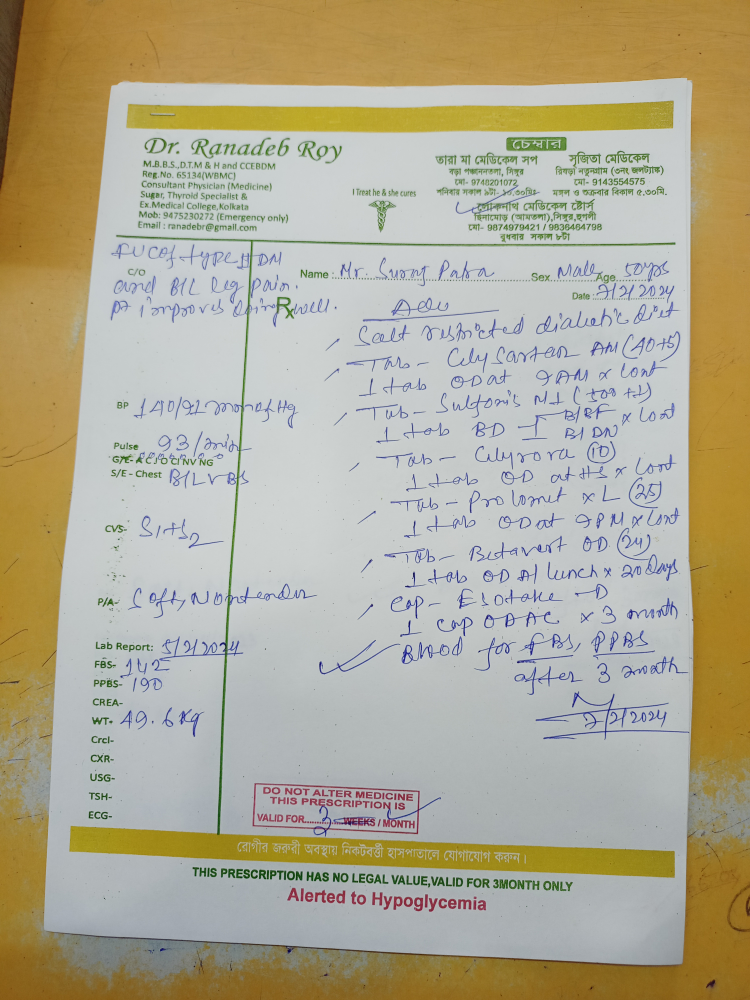 Dr. Ranadeb Roy
M.B.B.S.,D.T.M & H and CCEBDM
Reg.No. 65134(WBMC)
Consultant Physician (Medicine)
Sugar, Thyroid Specialist &
Ex.Medical College,Kolkata
Mob: 9475230272 (Emergency only)
Email : ranadebr@gmail.com
I Treat he & she cures
চেম্বার
তারা মা মেডিকেল সপ
বড়া পঞ্চাননতলা, সিঙ্গুর
মো- 9748201072
শনিবার সকাল ৯টা-
সৃজিতা মেডিকেল
রিষড়া নতুনগ্রাম (৩নং জলট্যাঙ্ক)
মো- 9143554575
মঙ্গল ও শুক্রবার বিকাল ৫.৩০মি.
লোকনাথ মেডিকেল ষ্টোর্স
(আমতলা),সিঙ্গুর,হুগলী
মো- 9874979421 / 9836484798
বুধবার সকাল ৮টা
Name : Mr. Suroj Patra Sex Male Age 50yrs
Date 7/2/2024
FUC of type II DM
C/O
and B/L leg pain.
pt improves doing well.
Rx
BP 140/92 mm of Hg
Pulse 93/min
G/E- A C J O Cl NV NG
S/E - Chest B/L VBS
CVS- S1+S2
P/A- Soft, Nontender
Lab Report: 5/2/2024
FBS- 142
PPBS- 190
CREA-
WT- 49.6 Kg
Crcl-
CXR-
USG-
TSH-
ECG-
Adv
Salt restricted diabetic diet
Tab - Cilysarten AM (40+5)
1 tab OD at 9AM x Cont
Tab - Sulfonis M1 (500+1)
1 tab BD - 1 B/BF 1 B/DN x Cont
Tab - Cilyrova (10)
1 tab OD at HS x Cont
Tab - Prolomet XL (25)
1 tab OD at 9PM x Cont
Tab - Betavert OD (24)
1 tab OD A/lunch x 20 days
Cap - Esotake -D
1 cap OD AC x 3 month
Blood for FBS, PPBS
after 3 month
7/2/2024
DO NOT ALTER MEDICINE
THIS PRESCRIPTION IS
VALID FOR....3....WEEKS / MONTH
রোগীর জরুরী অবস্থায় নিকটবর্ত্তী হাসপাতালে যোগাযোগ করুন।
THIS PRESCRIPTION HAS NO LEGAL VALUE,VALID FOR 3MONTH ONLY
Alerted to Hypoglycemia